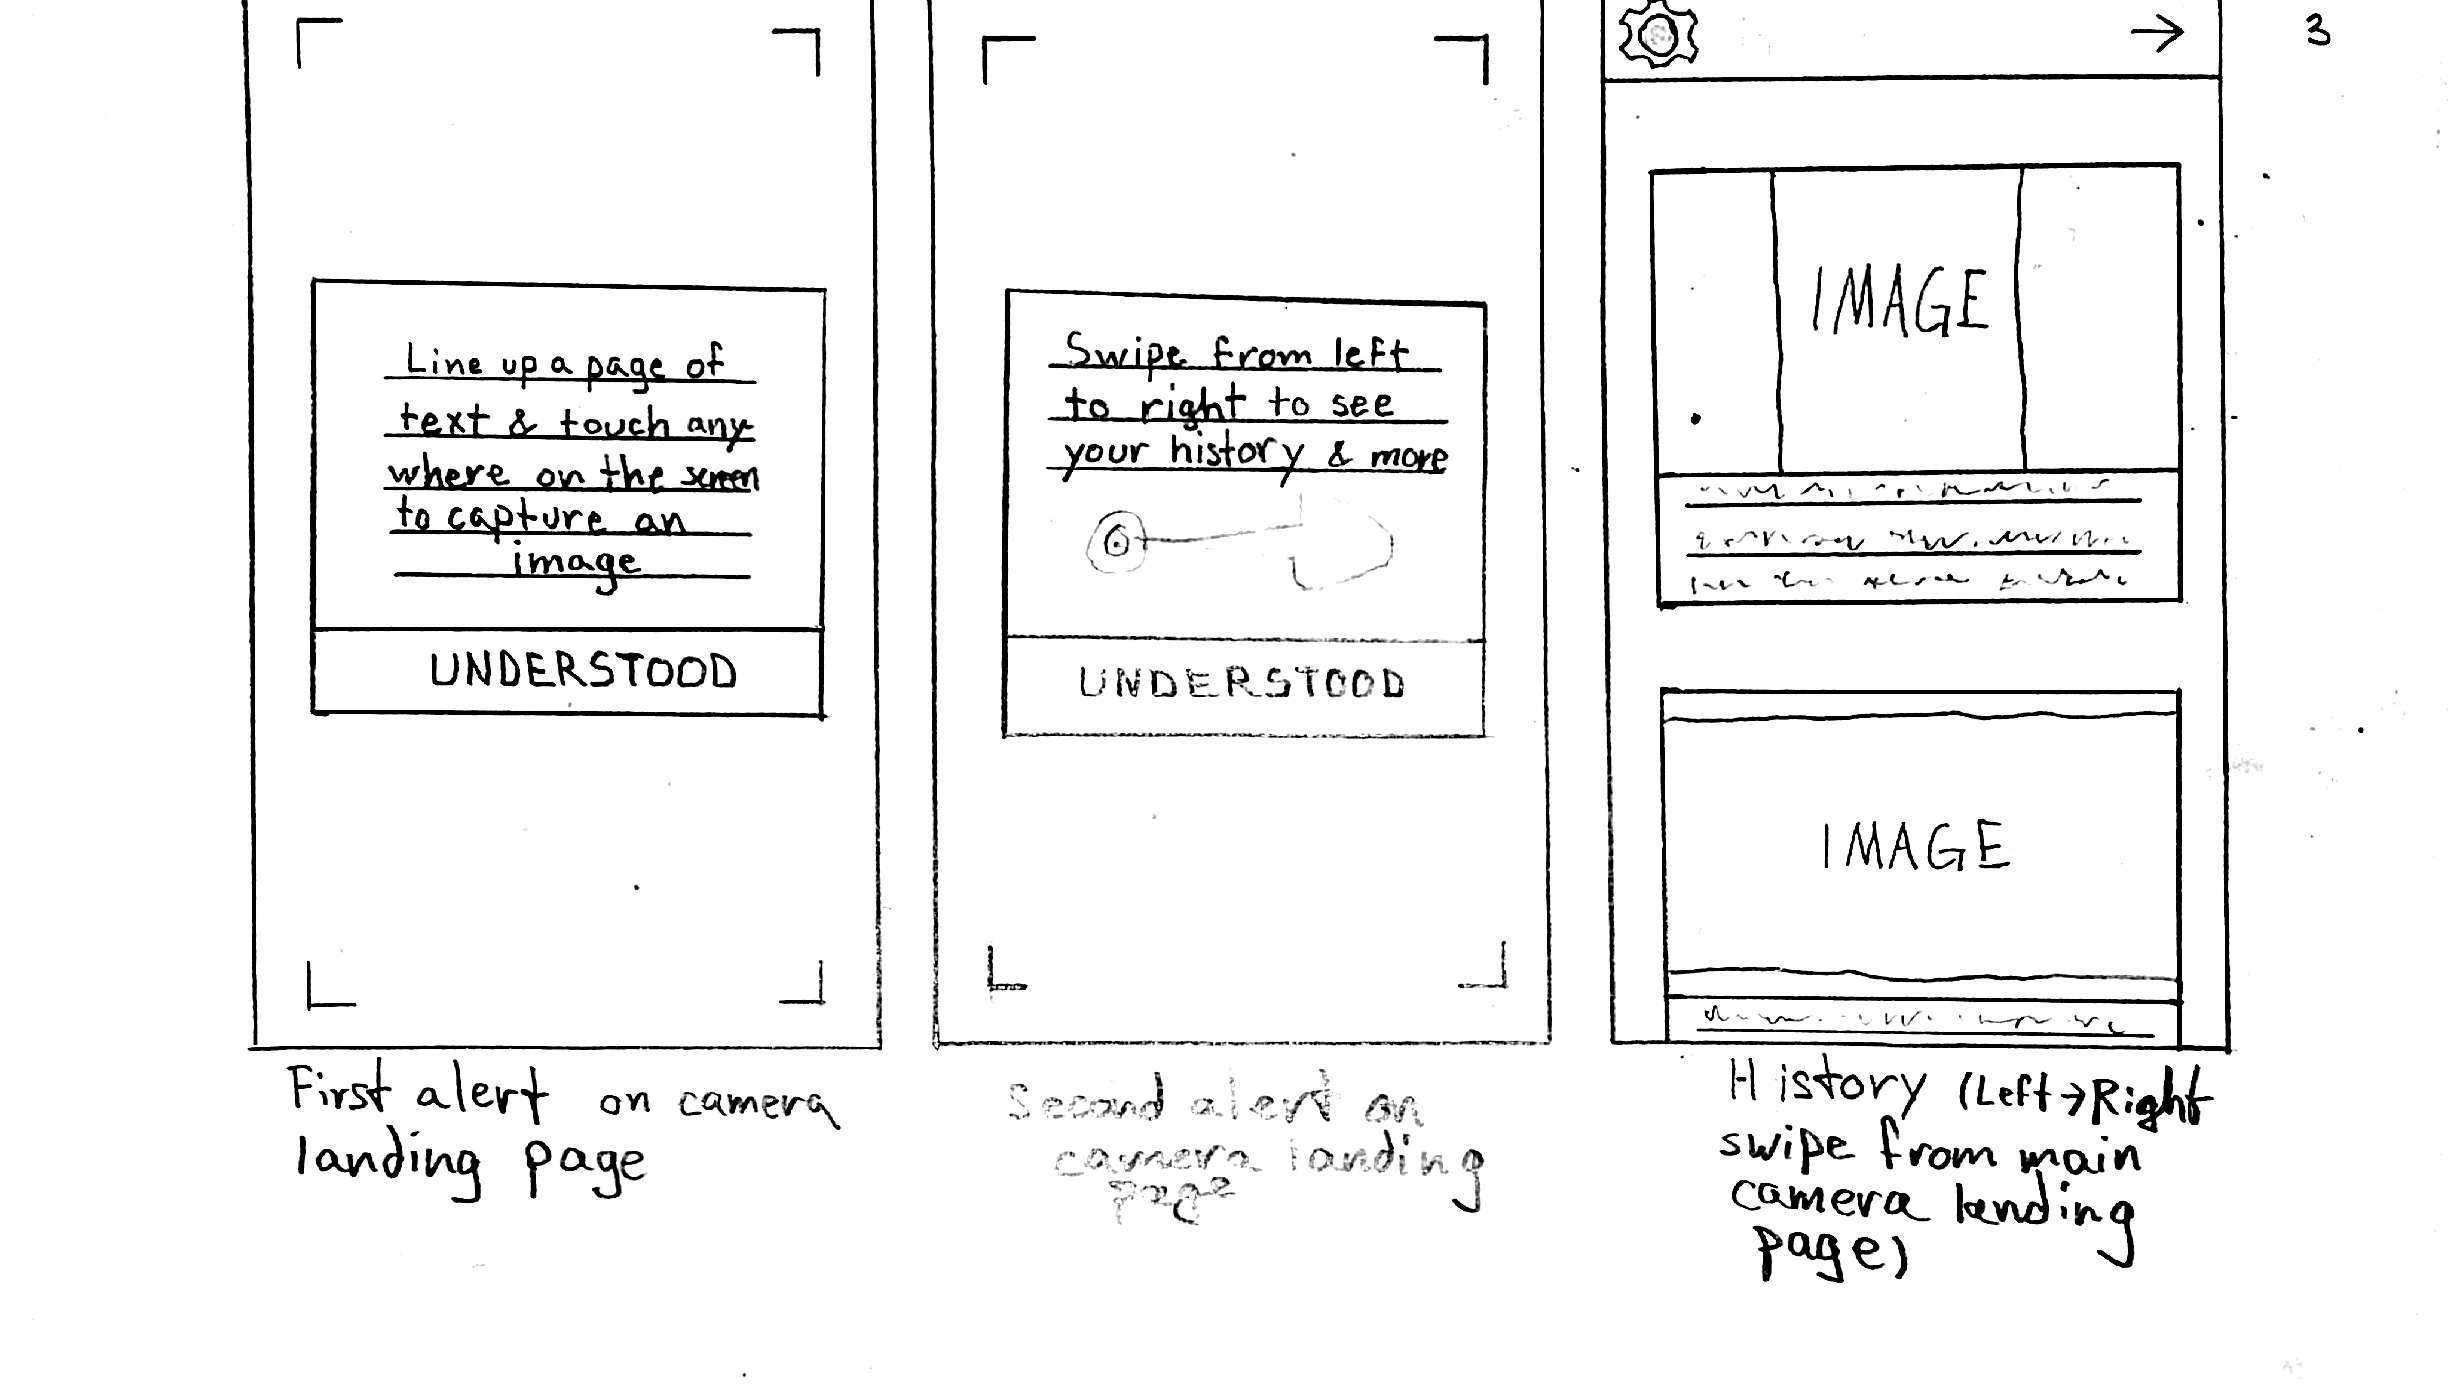 3
Line up a page of
text & touch any-
where on the screen
to capture an
image
UNDERSTOOD
First alert on camera
landing page
Swipe from left
to right to see
your history & more
UNDERSTOOD
Second alert on
camera landing
page
IMAGE
IMAGE
History (Left→Right
swipe from main
camera landing
page)